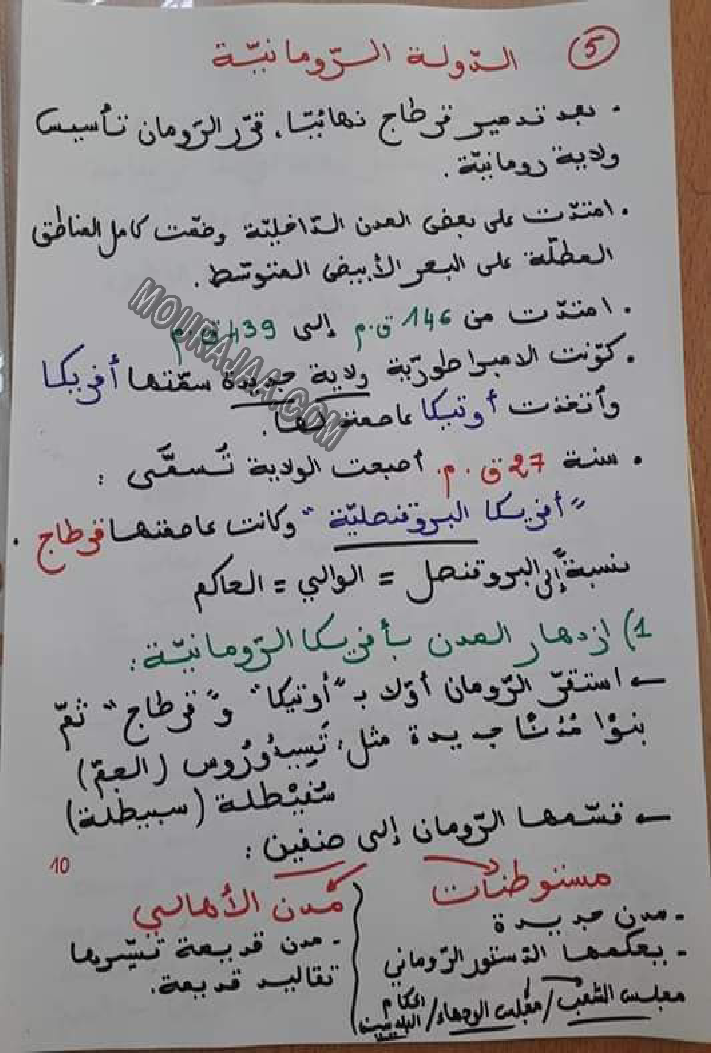 5 الدّولة الرّومانيّة
• بعد تدمير قرطاج نهائيّا، قرّر الرّومان تأسيس
ولاية رومانيّة.
• امتدّت على بعض المدن الدّاخليّة وضمّت كامل المناطق
المطلّة على البحر الأبيض المتوسّط.
• امتدّت من 146 ق.م إلى 439 ق.م
• كوّنت الامبراطوريّة ولاية جديدة سمّتها أفريكا
وٱتّخذت أوتيكا عاصمة لها.
• سنة 27 ق.م. أصبحت الولاية تُسمَّى :
"أفريكا البروقنصليّة" وكانت عاصمتها قرطاج.
نسبةً إلى البروقنصل = الوالي = الحاكم
1) ازدهار المدن بأفريكا الرّومانيّة :
← استقرّ الرّومان أوّلا بـ "أوتيكا" و"قرطاج" ثمّ
بنوْا مُدُنًا جديدة مثل: تَيسِدْرُوس (الجمّ)
سُفيْطلة (سبيطلة)
← قسّمها الرّومان إلى صنفين :
10
مستوطنات
- مدن جديدة
- يحكمها الدّستور الرّوماني
مجلس الشّعب / مجلس الوجهاء / الحكام البلديين
مدن الأهالي
- مدن قديمة تسيّرها
تقاليد قديمة.
MOURAJAA.COM